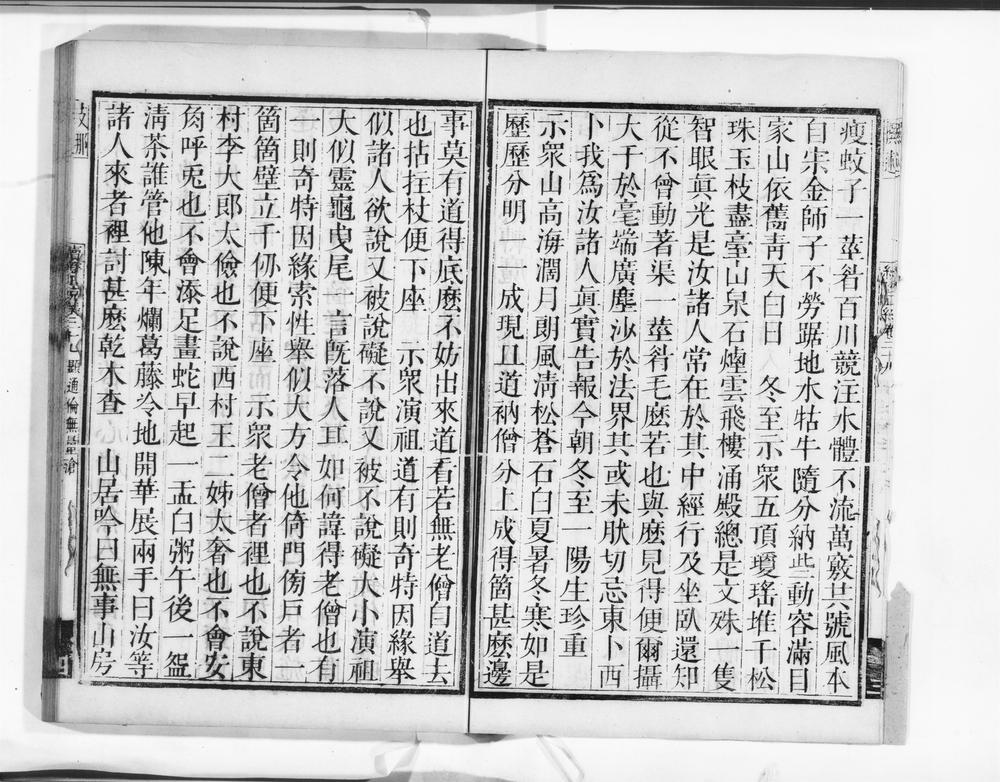 瘦蚊子一莖䈥百川競汪水體不流萬竅共號風本
自宋金師子不勞踞地水牯牛隨分納些動容滿目
家山依舊青天白日　冬至示眾五頂瓊瑤堆千松
珠玉枝盡臺山泉石煙雲飛樓涌殿總是文殊一隻
智眼眞光是汝諸人常在於其中經行及坐臥還知
從不曾動著渠一莖䈥毛麽若也與麽見得便爾攝
大千於毫端廣塵沙於法界其或未肰切忌東卜西
卜我爲汝諸人眞實告報今朝冬至一陽生珍重
示眾山高海濶月朗風清松蒼石白夏暑冬寒如是
歷歷分明一一成現且道衲僧分上成得箇甚麽邊
事莫有道得底麽不妨出來道看若無老僧自道去
也拈拄杖便下座　示眾演祖道有則奇特因緣舉
似諸人欲說又被說礙不說又被不說礙大小演祖
大似靈龜曳尾一言旣落人耳如何諱得老僧也有
一則奇特因緣索性舉似大方令他倚門傍戶者一
箇箇壁立千仞便下座　示眾老僧者裡也不說東
村李大郎太儉也不說西村王二姊太奢也不會安
䏍呼兎也不會添足畫蛇早起一盂白粥午後一盌
清茶誰管他陳年爛葛藤冷地開華展兩手曰汝等
諸人來者裡討甚麽乾木查　山居吟曰無事山房